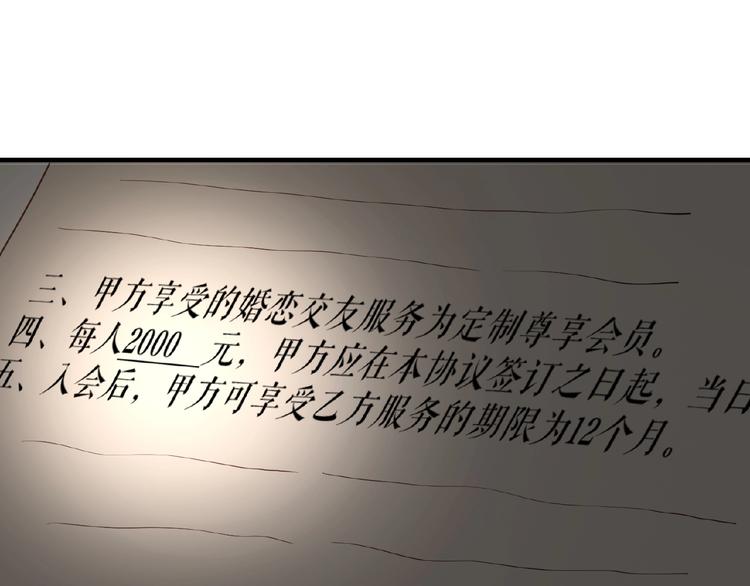 三、甲方享受的婚恋交友服务为定制尊享会员。
四、每人2000元，甲方应在本协议签订之日起，当日
五、入会后，甲方可享受乙方服务的期限为12个月。